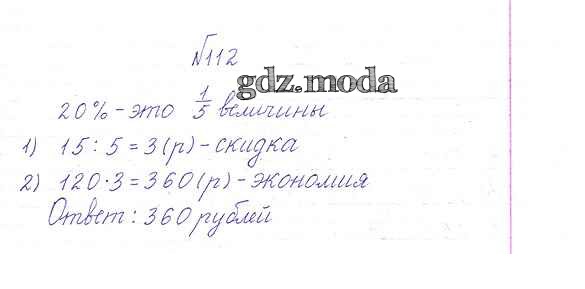 №112
gdz.moda
20% - это 1/5 величины
1) 15 : 5 = 3 (р) - скидка
2) 120 · 3 = 360 (р) - экономия
Ответ : 360 рублей